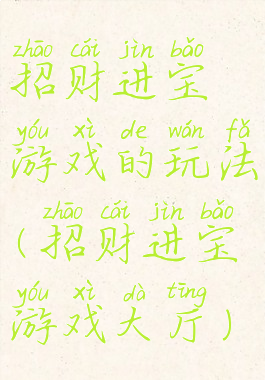 zhāo cái jìn bǎo
招财进宝
yóu xì de wán fǎ
游戏的玩法
zhāo cái jìn bǎo
(招财进宝
yóu xì dà tīng
游戏大厅)